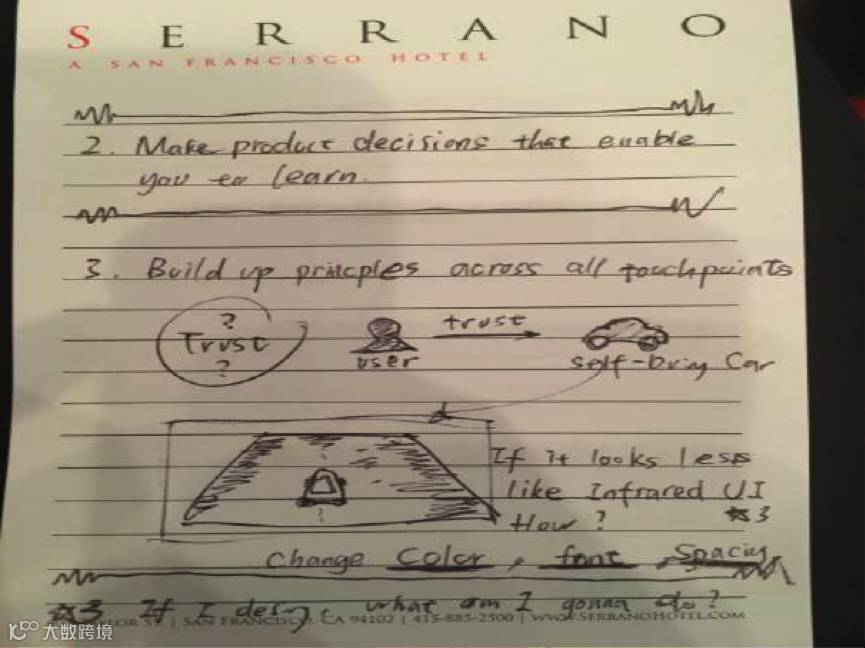 SERRANO
A SAN FRANCISCO HOTEL
2. Make product decisions that enable
you to learn.
3. Build up princples across all touchpoints
?
Trust
?
user
trust
Self-Dring Car
If it looks less
like Infrared UI
How? ☆3
Change Color, font, Spacing
☆3 If I desig, what am I gonna do?
OR ST | SAN FRANCISCO, CA 94102 | 415-885-2500 | WWW.SERRANOHOTEL.COM
大数跨境